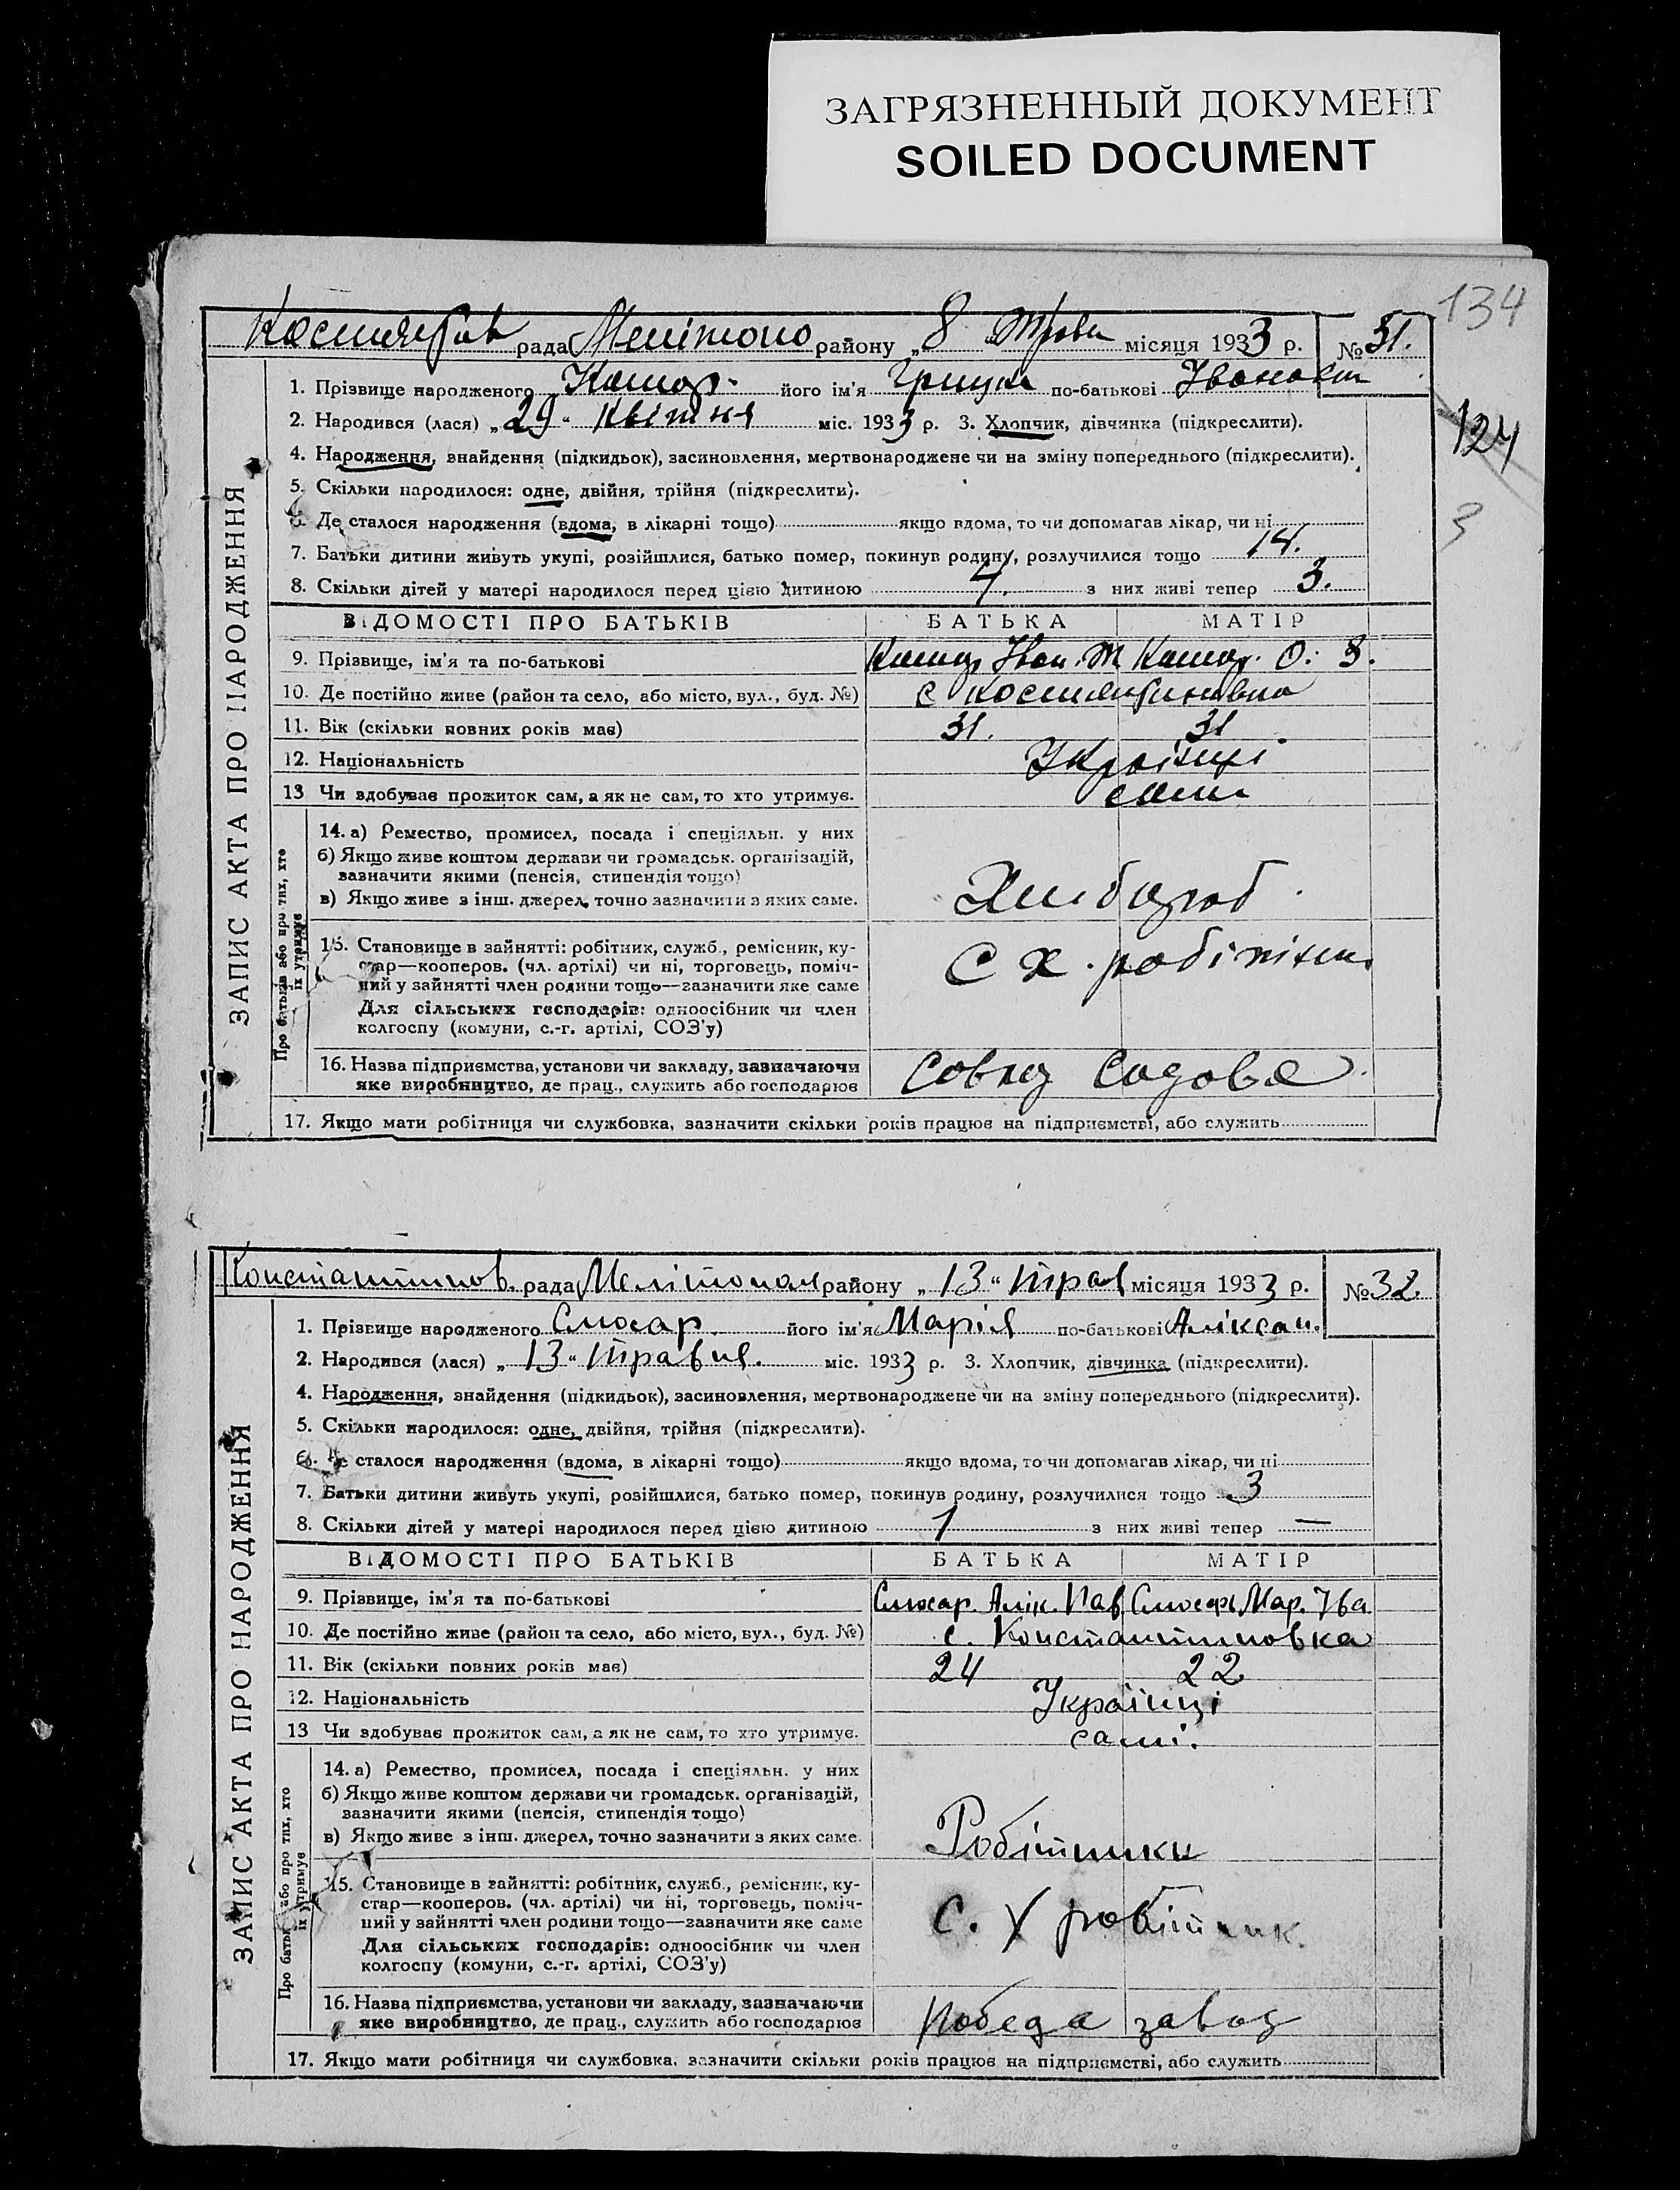 ЗАГРЯЗНЕННЫЙ ДОКУМЕНТ
SOILED DOCUMENT
134
рада Мелітопо району „8" Трав місяця 1933 р. № 31.
1. Прізвище народженого його ім'я Грицко по-батькові
2. Народився (лася) „29" Квітня міс. 1933 р. 3. Хлопчик, дівчинка (підкреслити).
124
4. Народження, знайдення (підкидьок), засиновлення, мертвонароджене чи на зміну попереднього (підкреслити).
5. Скільки народилося: одне, двійня, трійня (підкреслити).
6. Де сталося народження (вдома, в лікарні тощо) якщо вдома, то чи допомагав лікар, чи ні
3
7. Батьки дитини живуть укупі, розійшлися, батько помер, покинув родину, розлучилися тощо 14.
8. Скільки дітей у матері народилося перед цією дитиною 4. з них живі тепер 3.
ВІДОМОСТІ ПРО БАТЬКІВ БАТЬКА МАТІР
9. Прізвище, ім'я та по-батькові Іван. О. З.
10. Де постійно живе (район та село, або місто, вул., буд. №) с
11. Вік (скільки повних років має) 31. 31.
12. Національність Українці
13 Чи здобуває прожиток сам, а як не сам, то хто утримує. сами
14. а) Ремество, промисел, посада і спеціяльн. у них
б) Якщо живе коштом держави чи громадськ. організацій,
зазначити якими (пенсія, стипендія тощо)
в) Якщо живе з інш. джерел, точно зазначити з яких саме.
Хлібороб.
15. Становище в зайнятті: робітник, служб., ремісник, ку-
стар—кооперов. (чл. артілі) чи ні, торговець, поміч-
ний у зайнятті член родини тощо—зазначити яке саме
С Х. робітник
Для сільських господарів: одноосібник чи член
колгоспу (комуни, с.-г. артілі, СОЗ'у)
16. Назва підприємства, установи чи закладу, зазначаючи
яке виробництво, де прац., служить або господарює
Совхоз Садове.
17. Якщо мати робітниця чи службовка, зазначити скільки років працює на підприємстві, або служить
ЗАПИС АКТА ПРО НАРОДЖЕННЯ
Про батьків або про тих, хто
їх утримує
Константинов. рада Мелітопол району „13" трав місяця 1933 р. № 32
1. Прізвище народженого Слюсар його ім'я Марія по-батькові Аліксан.
2. Народився (лася) „13" травня. міс. 1933 р. 3. Хлопчик, дівчинка (підкреслити).
4. Народження, знайдення (підкидьок), засиновлення, мертвонароджене чи на зміну попереднього (підкреслити).
5. Скільки народилося: одне, двійня, трійня (підкреслити).
6. Де сталося народження (вдома, в лікарні тощо) якщо вдома, то чи допомагав лікар, чи ні
7. Батьки дитини живуть укупі, розійшлися, батько помер, покинув родину, розлучилися тощо 3
8. Скільки дітей у матері народилося перед цією дитиною 1 з них живі тепер —
ВІДОМОСТІ ПРО БАТЬКІВ БАТЬКА МАТІР
9. Прізвище, ім'я та по-батькові Слюсар. Алік. Пав Слюсарь Мар. Іва
10. Де постійно живе (район та село, або місто, вул., буд. №) с. Константиновка
11. Вік (скільки повних років має) 24 22
12. Національність Українці
13 Чи здобуває прожиток сам, а як не сам, то хто утримує. сами.
14. а) Ремество, промисел, посада і спеціяльн. у них
б) Якщо живе коштом держави чи громадськ. організацій,
зазначити якими (пенсія, стипендія тощо)
в) Якщо живе з інш. джерел, точно зазначити з яких саме.
Робітники
15. Становище в зайнятті: робітник, служб., ремісник, ку-
стар—кооперов. (чл. артілі) чи ні, торговець, поміч-
ний у зайнятті член родини тощо—зазначити яке саме
С. Х робітник.
Для сільських господарів: одноосібник чи член
колгоспу (комуни, с.-г. артілі, СОЗ'у)
16. Назва підприємства, установи чи закладу, зазначаючи
яке виробництво, де прац., служить або господарює
Победа завод
17. Якщо мати робітниця чи службовка, зазначити скільки років працює на підприємстві, або служить
ЗАПИС АКТА ПРО НАРОДЖЕННЯ
Про батьк або про тих, хто
їх утримує